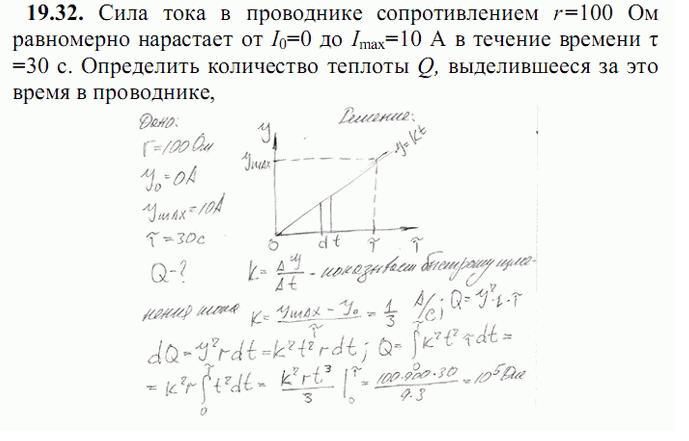 19.32. Сила тока в проводнике сопротивлением r=100 Ом
равномерно нарастает от I₀=0 до Imax=10 А в течение времени τ
=30 с. Определить количество теплоты Q, выделившееся за это
время в проводнике,
Дано: Решение:
r=100 Ом
y₀=0А
ymax=10А
τ=30с
Q-?
y
ymax
y=kt
0 dt τ τ
k= Δy/Δt - показывает быстроту изме-
нения тока k= (ymax - y₀)/τ = 1/3 А/с; Q=y²·r·τ
dQ=y²rdt=k²t²rdt; Q=∫₀^τ k²t²rdt=
=k²r∫₀^τ t²dt= k²rt³/3 |₀^τ = 100·900·30/9·3 =10⁵Дж